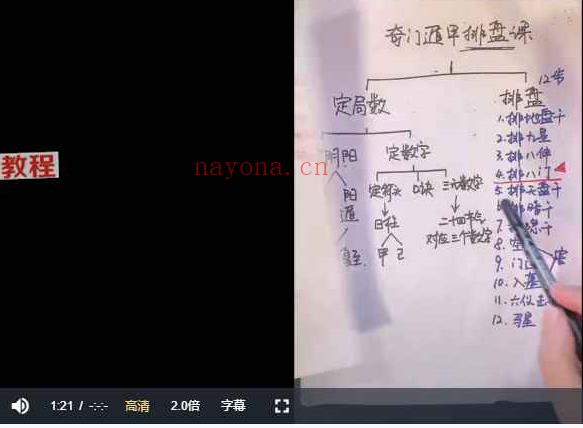 奇门遁甲排盘课
12步
定局数
排盘
1.排地盘干
2.排九星
3.排八神
4.排八门
5.排天盘干
排暗干
7.
8.空
9.门迫
10.入墓
11.六仪击
12.
阴阳
定数字
定符头
口诀
三元数字
阳遁
日柱
二十四节气
对应三个数字
甲己
教程
nayona.cn
1:21 / -:-:-
高清
2.0倍
字幕